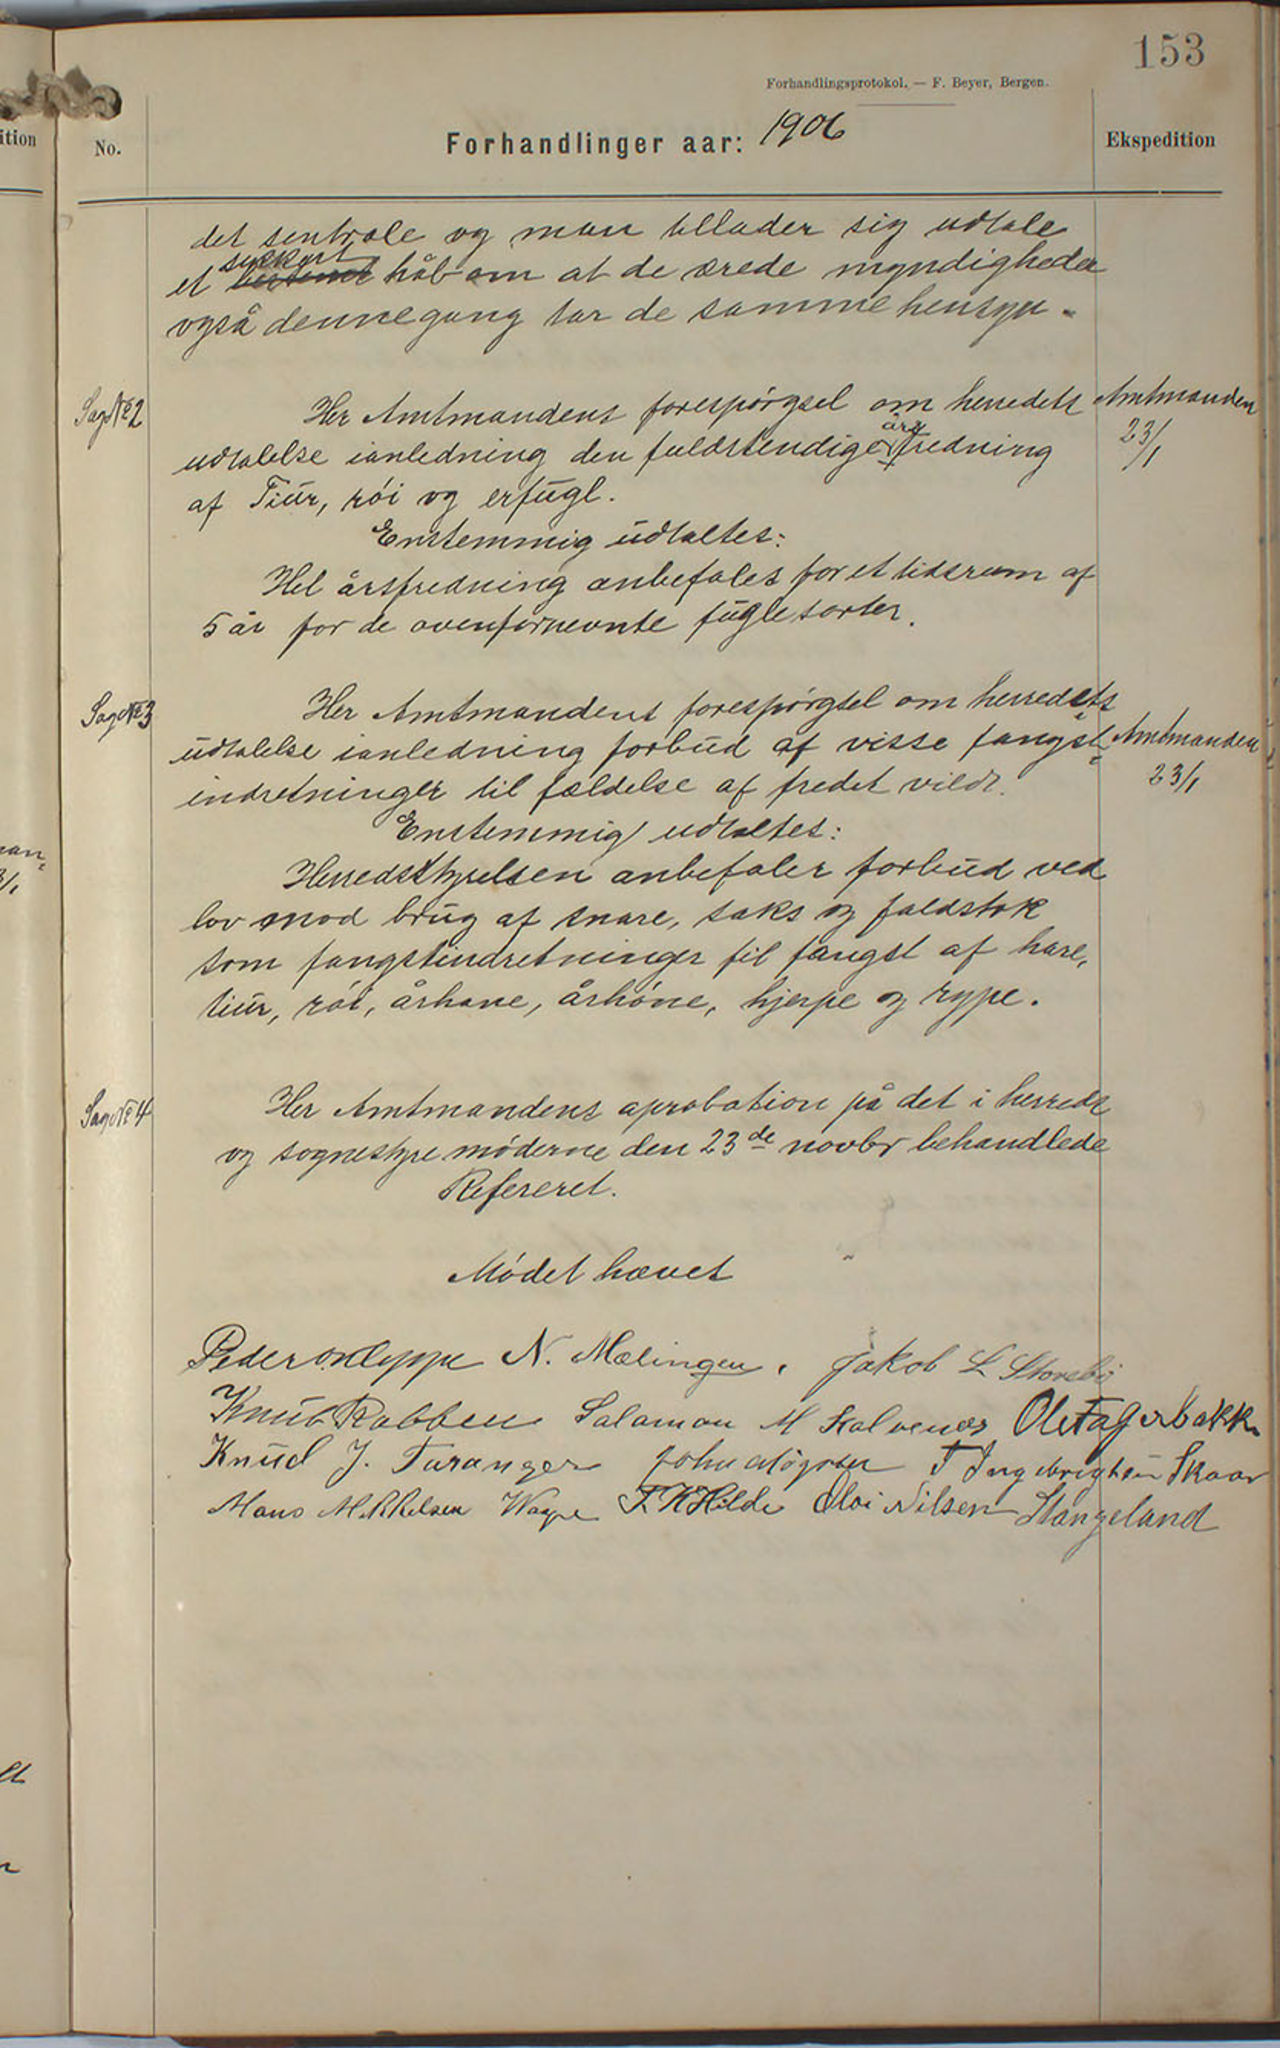 153
Forhandlingsprotokol. — F. Beyer, Bergen.
ition
No.
Forhandlinger aar: 1906
Ekspedition
det sentrale og man tillader sig udtale
sikkert
et håb om at de ærede myndigheder
også dennegang tar de samme hensyn.
Sag № 2
Her Amtmandens forespørgsel om herredets
Amtmanden
23/1
års
udtalelse ianledning den fuldstendige fredning
af Tiur, röi og erfugl.
Enstemmig udtaltes:
Hel årsfredning anbefales for et tidsrum af
5 år for de ovenfornevnte fuglesorter.
Sag № 3
Her Amtmandens forespørgsel om herredets
udtalelse ianledning forbud af visse fangst-
Amtmanden
23/1
indretninger til fældelse af fredet vildt.
Enstemmig udtaltes:
Herredsstyrelsen anbefaler forbud ved
lov mod brug af snare, saks og faldstok
som fangstindretninger til fangst af hare,
tiur, röi, århane, århöne, hjerpe og rype.
Sag № 4
Her Amtmandens aprobation på det i herreds
og sognestyremøderne den 23de novbr behandlede
Refereret.
Mødet hævet
Peder O. Kleppe N. Mælingen. Jakob L Storebö
Knut Rabben Salamon M Kalvenæs Ole Fagerbakke
Knud J. Taranger John Møgster T Ingebrigtsen Skaar
Mons Mikkelsen Waage T. K Hilde Eloi Nilsen Stangeland